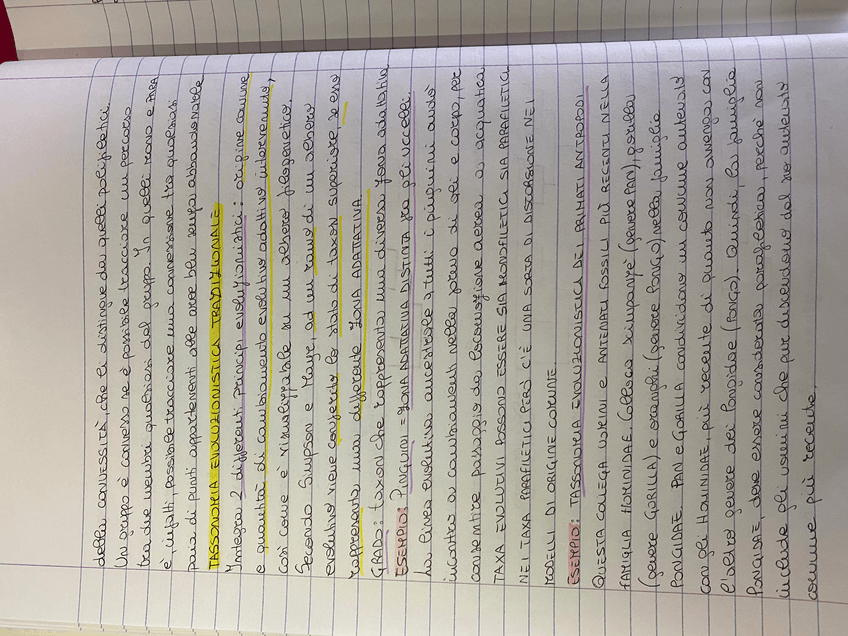 della CONVESSITÀ, che li distingue da quelli polifiletici.
Un gruppo è convesso se è possibile tracciare un percorso
tra due membri qualsiasi del gruppo. In quelli mono e PARA
è, infatti, possibile tracciare una connessione tra qualsiasi
paia di punti appartenenti alle aree ben senza abbandonarle
TASSONOMIA EVOLUZIONISTICA TRADIZIONALE
Integra 2 differenti principi evoluzionistici: origine comune
e quantità di cambiamento evolutivo adattivo intervenuto,
così come è visualizzabile su un albero filogenetico.
Secondo Simpson e Mayr, ad un ramo di un albero
evolutivo viene conferito lo stato di taxon superiore, se esso
rappresenta una differente ZONA ADATTATIVA.
GRADO: taxon che rappresenta una diversa zona adattativa
ESEMPIO: PINGUINI = ZONA ADATTATIVA DISTINTA tra gli uccelli.
la linea evolutiva ancestrale a tutti i pinguini andò
incontro a cambiamenti nella forma di ali e corpo, per
consentire passaggio da locomozione aerea a acquatica
TAXA EVOLUTIVI POSSONO ESSERE SIA MONOFILETICI SIA PARAFILETICI
NEI TAXA PARAFILETICI PERÒ C'È UNA SORTA DI DISTORSIONE NEI
MODELLI DI ORIGINE COMUNE.
ESEMPIO: TASSONOMIA EVOLUZIONISTICA DEI PRIMATI ANTROPOIDI
QUESTA COLLEGA UOMINI E ANTENATI FOSSILI PIÙ RECENTI NELLA
FAMIGLIA HOMINIDAE. Colloca scimpanzé (genere PAN), gorilla
(genere GORILLA) e oranghi (genere PONGO) nella famiglia
PONGIDAE. PAN e GORILLA condividono un comune antenato
con gli HOMINIDAE, più recente di quanto non avvenga con
l'altro genere dei Pongidae (PONGO). Quindi, la famiglia
PONGIDAE, deve essere considerata parafiletica, perchè non
include gli uomini che pur discendono dal suo antenato
comune più recente.